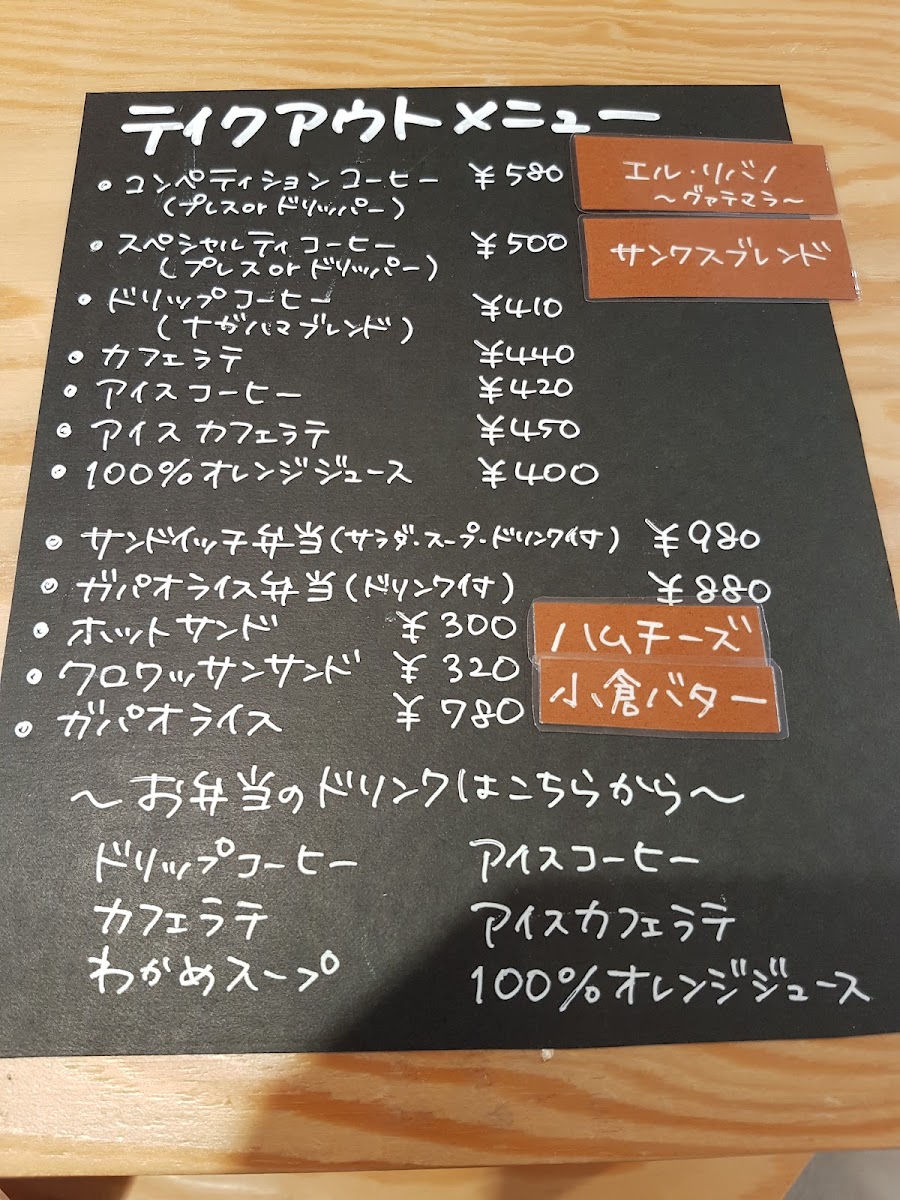 テイクアウトメニュー
・コンペティションコーヒー ¥580 エル・リバノ
(プレスorドリッパー) ～グァテマラ～
・スペシャルティコーヒー ¥500 サンワスブレンド
(プレスorドリッパー)
・ドリップコーヒー ¥410
(ナガハマブレンド)
・カフェラテ ¥440
・アイスコーヒー ¥420
・アイスカフェラテ ¥450
・100%オレンジジュース ¥400
・サンドイッチ弁当(サラダ・スープ・ドリンク付) ¥980
・ガパオライス弁当(ドリンク付) ¥880
・ホットサンド ¥300 ハムチーズ
・クロワッサンサンド ¥320 小倉バター
・ガパオライス ¥780
～お弁当のドリンクはこちらから～
ドリップコーヒー アイスコーヒー
カフェラテ アイスカフェラテ
わかめスープ 100%オレンジジュース